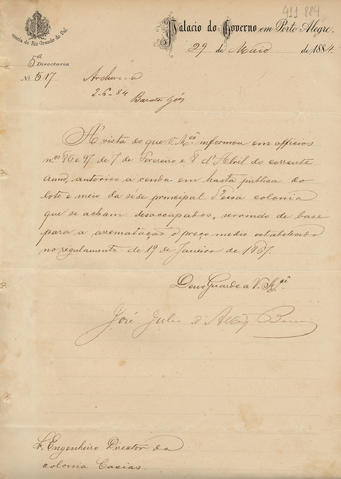 411 884
Palacio do Governo em Porto Alegre,
29 de Maio de 1884.
Provincia do Rio Grande do Sul
5ª Directoria
Nº 617
Archive-se
2-6-84
Barata Góes
Á vista do que V. Mcê informou em officios
nºs 86 e 97 de 7 de Fevereiro e 8 d'Abril do corrente
anno, autoriso a venda em hasta publica do
lote e meio da séde principal d'essa colonia
que se acham desoccupados, servindo de base
para a arrematação o preço medio estabelecido
no regulamento de 19 de Janeiro de 1867.
Deus Guarde a V. Mcê
José Julio d'Alb. Barros
Sr. Engenheiro Director da
colonia Caxias.